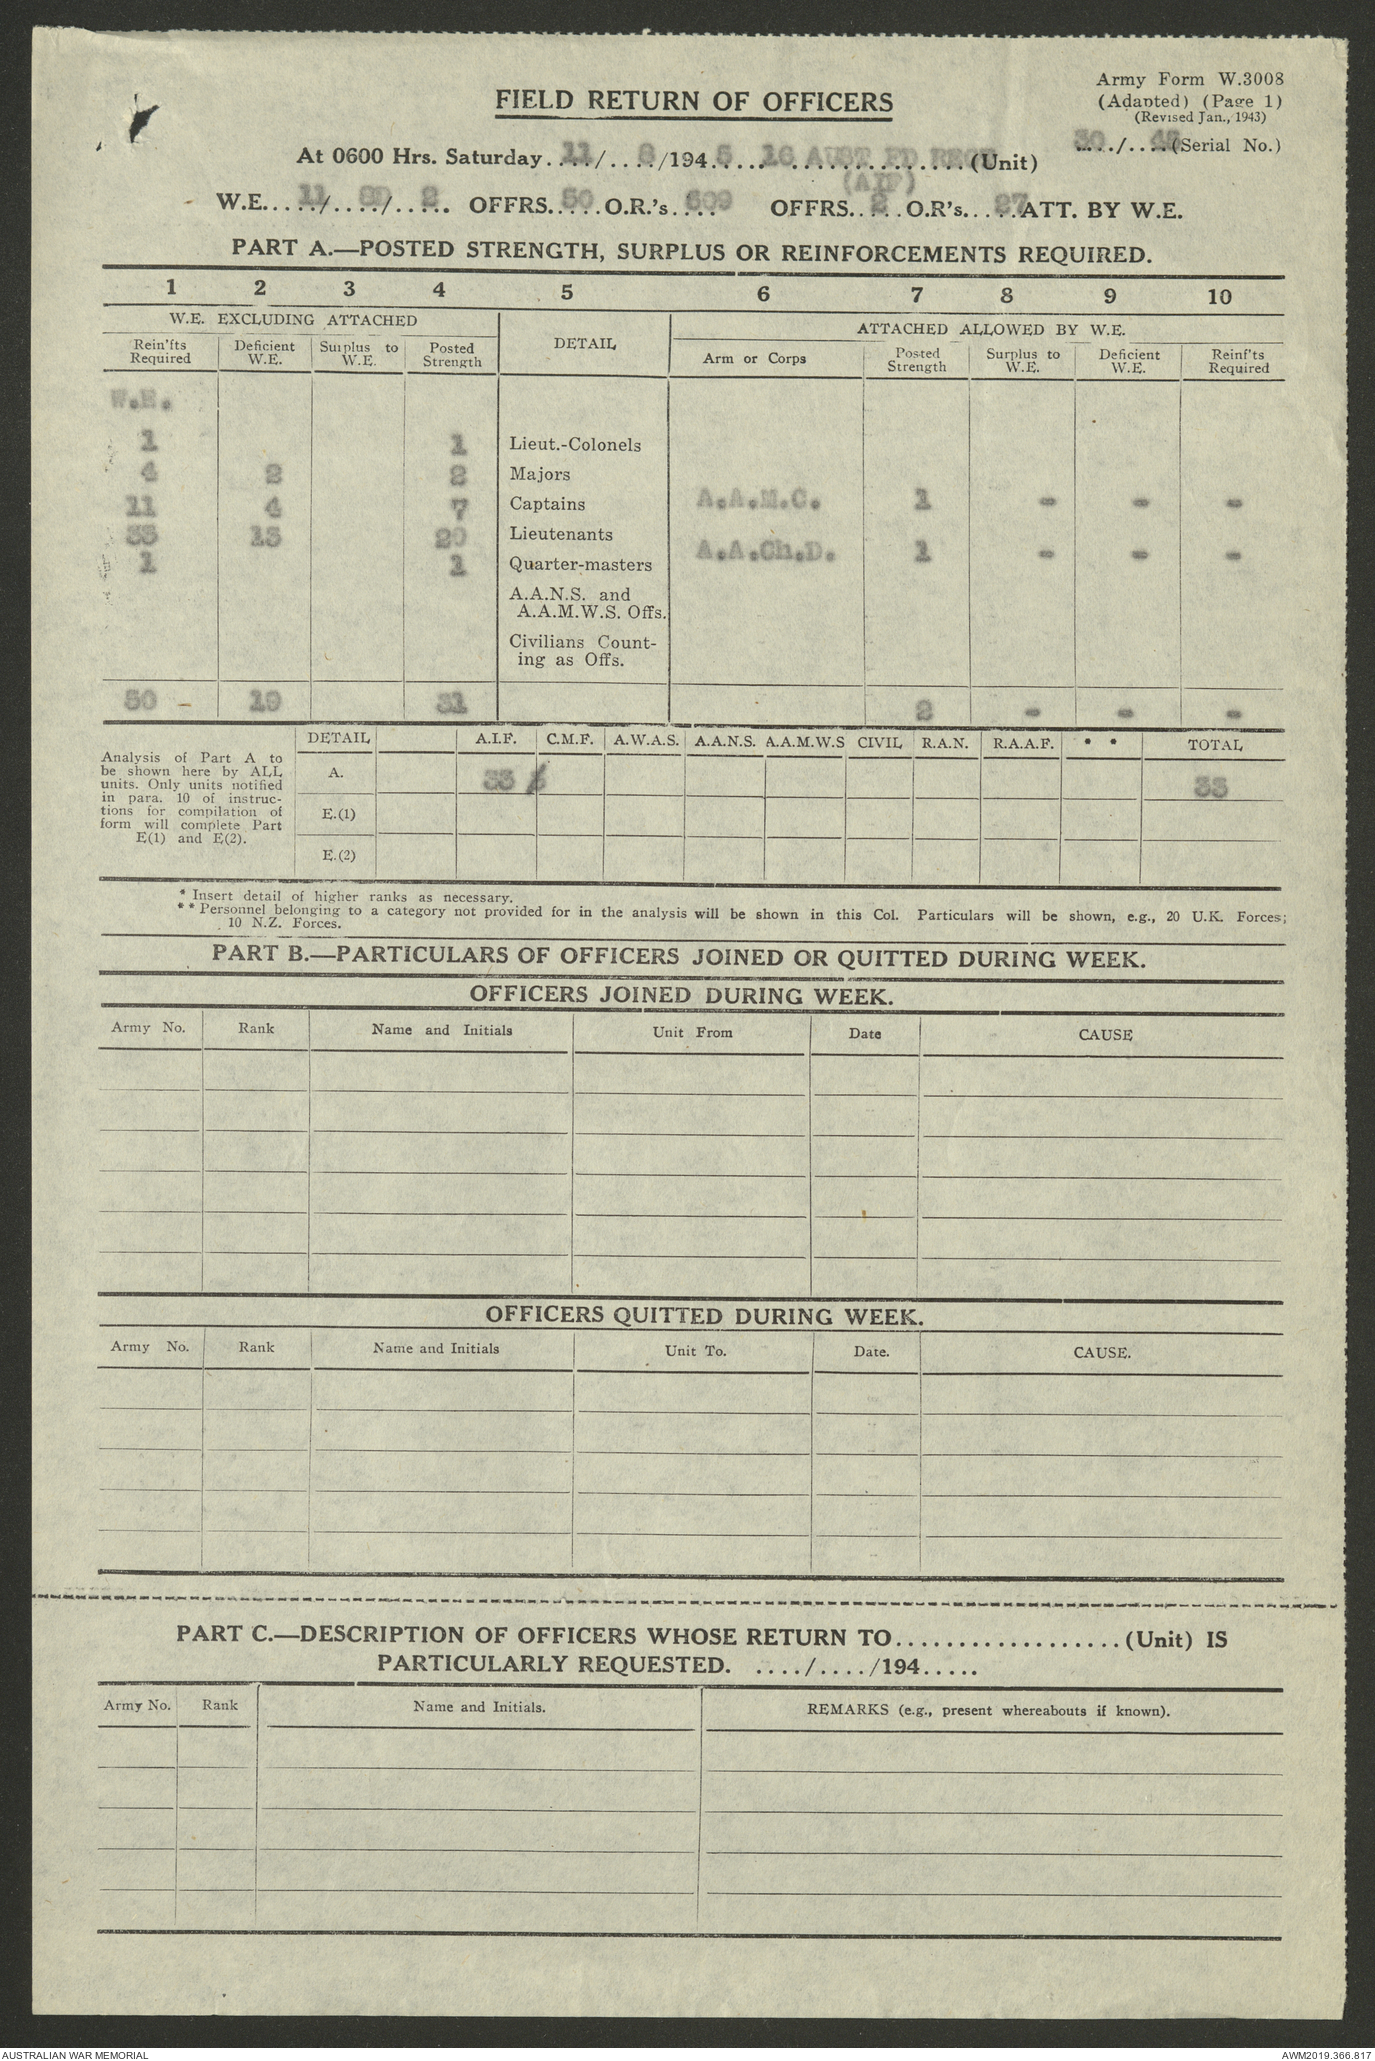 Army Form W.3008
FIELD RETURN OF OFFICERS
(Adapted) (Page 1)
(Revised Jan., 1943)
At 0600 Hrs. Saturday....11/....8/194.5.... 16 AUST FD REGT (Unit) 30/45 (Serial No.)
(AIF)
W.E.....11/..../...2.. OFFRS.50....O.R.'s.609 OFFRS..2..O.R's...27 ATT. BY W.E.
PART A.—POSTED STRENGTH, SURPLUS OR REINFORCEMENTS REQUIRED.
1 2 3 4 5 6 7 8 9 10
W.E. EXCLUDING ATTACHED DETAIL ATTACHED ALLOWED BY W.E.
Rein'fts Required Deficient W.E. Surplus to W.E. Posted Strength Arm or Corps Posted Strength Surplus to W.E. Deficient W.E. Reinf'ts Required
W.E.
1 1 Lieut.-Colonels
4 2 2 Majors
11 4 7 Captains A.A.M.C. 1 - - -
33 13 20 Lieutenants
A.A.Ch.D. 1 - - -
1 1 Quarter-masters
A.A.N.S. and
A.A.M.W.S. Offs.
Civilians Count-
ing as Offs.
50 - 19 31 2 - - -
DETAIL A.I.F. C.M.F. A.W.A.S. A.A.N.S. A.A.M.W.S CIVIL R.A.N. R.A.A.F. * * TOTAL
Analysis of Part A to
be shown here by ALL
units. Only units notified
in para. 10 of instruc-
tions for compilation of
form will complete Part
E(1) and E(2).
A. 33 33
E.(1)
E.(2)
* Insert detail of higher ranks as necessary.
* * Personnel belonging to a category not provided for in the analysis will be shown in this Col. Particulars will be shown, e.g., 20 U.K. Forces;
10 N.Z. Forces.
PART B.—PARTICULARS OF OFFICERS JOINED OR QUITTED DURING WEEK.
OFFICERS JOINED DURING WEEK.
Army No. Rank Name and Initials Unit From Date CAUSE
OFFICERS QUITTED DURING WEEK.
Army No. Rank Name and Initials Unit To. Date. CAUSE.
PART C.—DESCRIPTION OF OFFICERS WHOSE RETURN TO..................(Unit) IS
PARTICULARLY REQUESTED. ..../..../194.....
Army No. Rank Name and Initials. REMARKS (e.g., present whereabouts if known).
AUSTRALIAN WAR MEMORIAL AWM2019.366.817